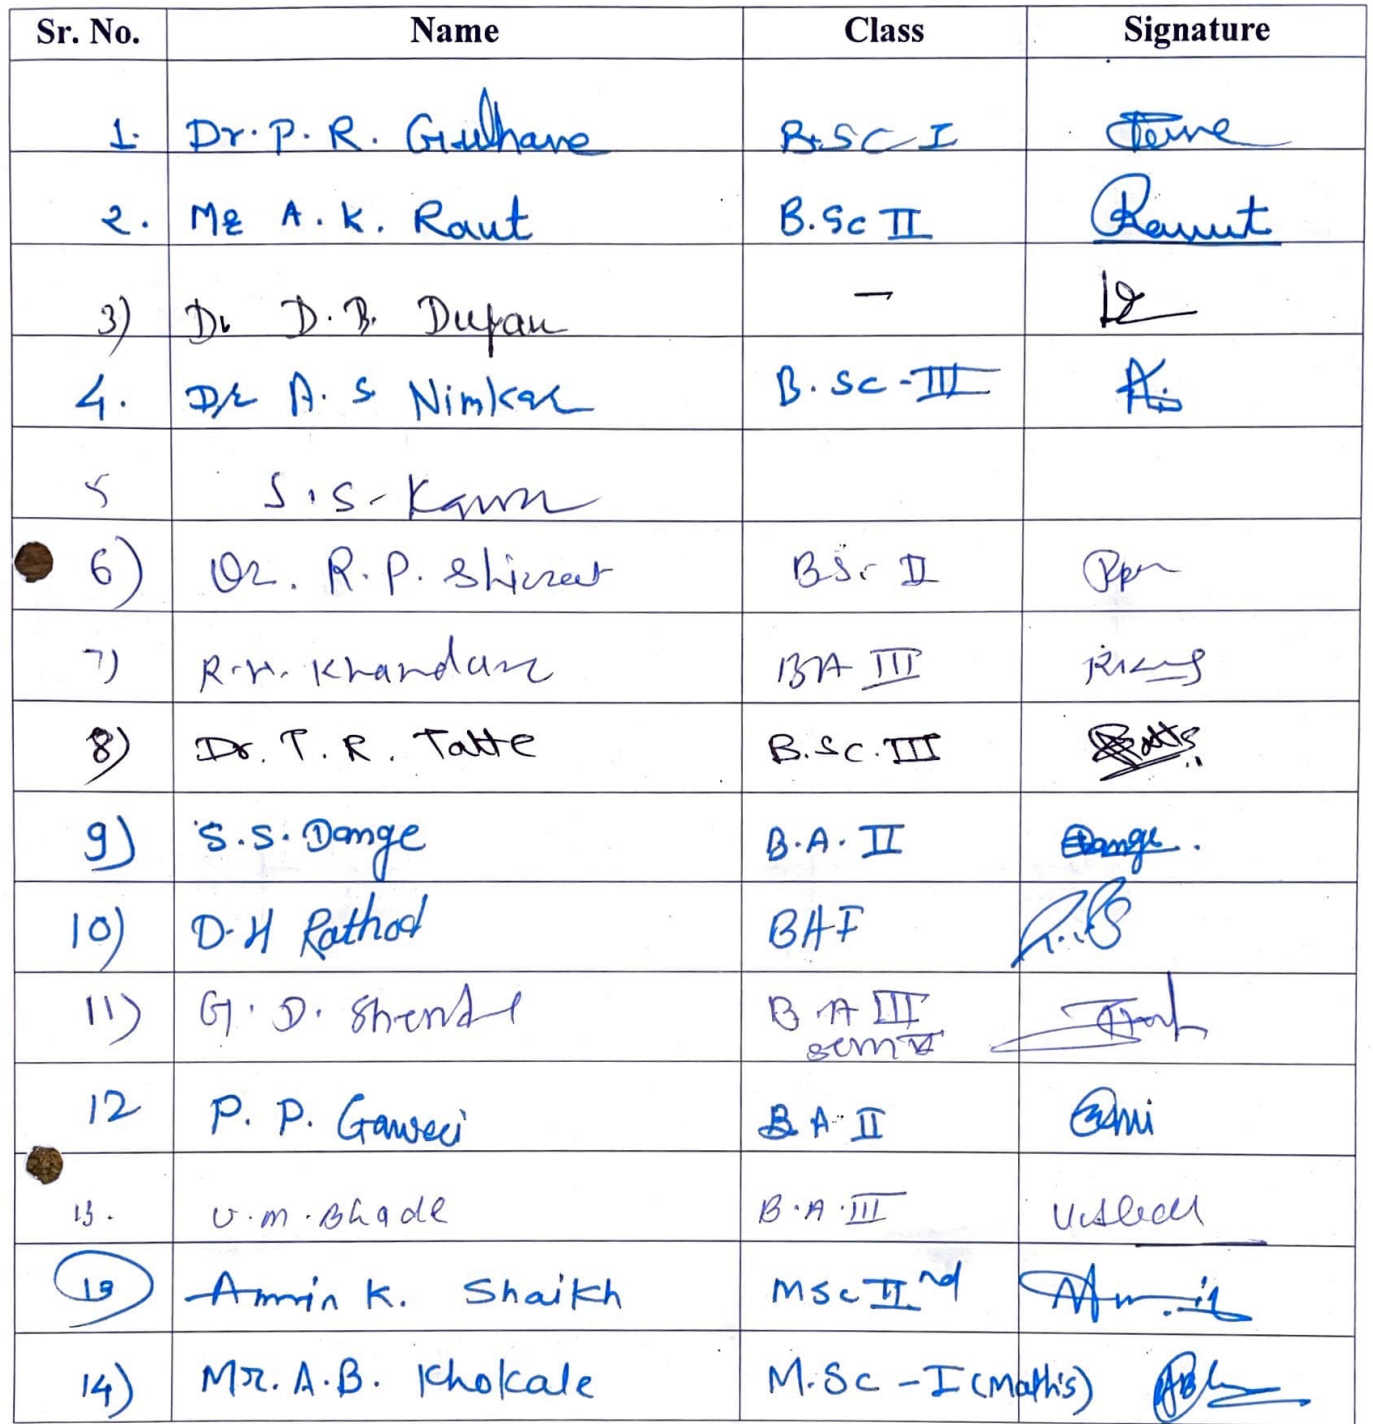 Sr. No. Name Class Signature
1. Dr. P. R. Gulhane B.SC I
2. Mr A. K. Raut B.Sc II Raut
3) Dr D. B. —
4. Dr A. S Nimkar B. Sc - III
5 S. S.
6) Dr. R. P. BSc II
7) R. H. BA III
8) Dr. T. R. Tatte B.Sc. III
9) S. S. Dange B.A. II Dange.
10) D. H Rathod BA I
11) G. D. Shende B A III
sem V
12 P. P. Gawai B A II
13. U. M. Bhade B.A. III
13 Amrin K. Shaikh MSc II nd
14) Mr. A. B. Khokale M.Sc - I (Maths)